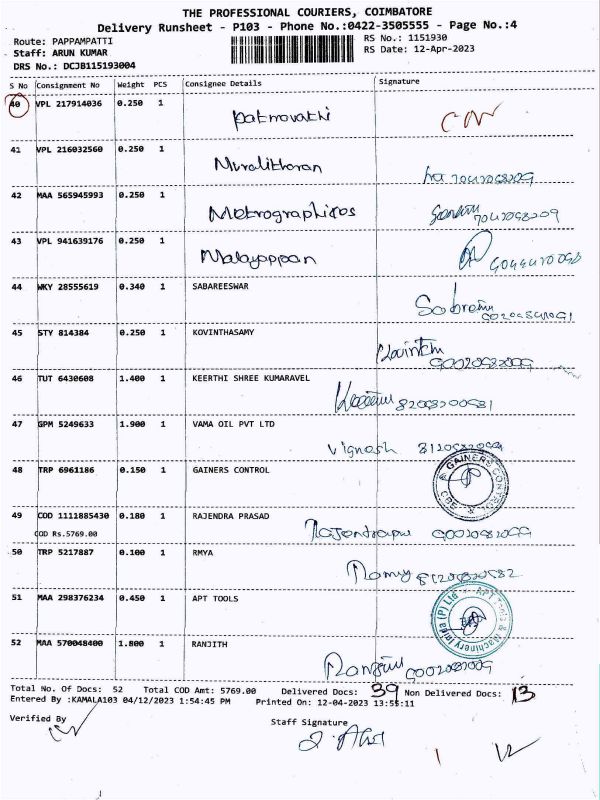 THE PROFESSIONAL COURIERS, COIMBATORE
Delivery Runsheet - P103 - Phone No.:0422-3505555 - Page No.:4
Route: PAPPAMPATTI RS No.: 1151930
Staff: ARUN KUMAR RS Date: 12-Apr-2023
DRS No.: DCJB115193004
S No Consignment No Weight PCS Consignee Details Signature
40 VPL 217914036 0.250 1
41 VPL 216032560 0.250 1 Muralitharan
42 MAA 565945993 0.250 1 Metrographicos
43 VPL 941639176 0.250 1 Malayappan
44 WKY 28555619 0.340 1 SABAREESWAR
45 STY 814384 0.250 1 KOVINTHASAMY
46 TUT 6430608 1.400 1 KEERTHI SHREE KUMARAVEL
47 GPM 5249633 1.900 1 VAMA OIL PVT LTD Vignesh
48 TRP 6961186 0.150 1 GAINERS CONTROL GAINERS CONTROL CBE
49 COD 1111885430 0.180 1 RAJENDRA PRASAD
COD Rs.5769.00
50 TRP 5217887 0.100 1 RMYA
51 MAA 298376234 0.450 1 APT TOOLS APT Tools & Machinery India (P) Ltd
52 MAA 570048400 1.800 1 RANJITH
Total No. Of Docs: 52 Total COD Amt: 5769.00 Delivered Docs: 39 Non Delivered Docs: 13
Entered By :KAMALA103 04/12/2023 1:54:45 PM Printed On: 12-04-2023 13:55:11
Verified By Staff Signature